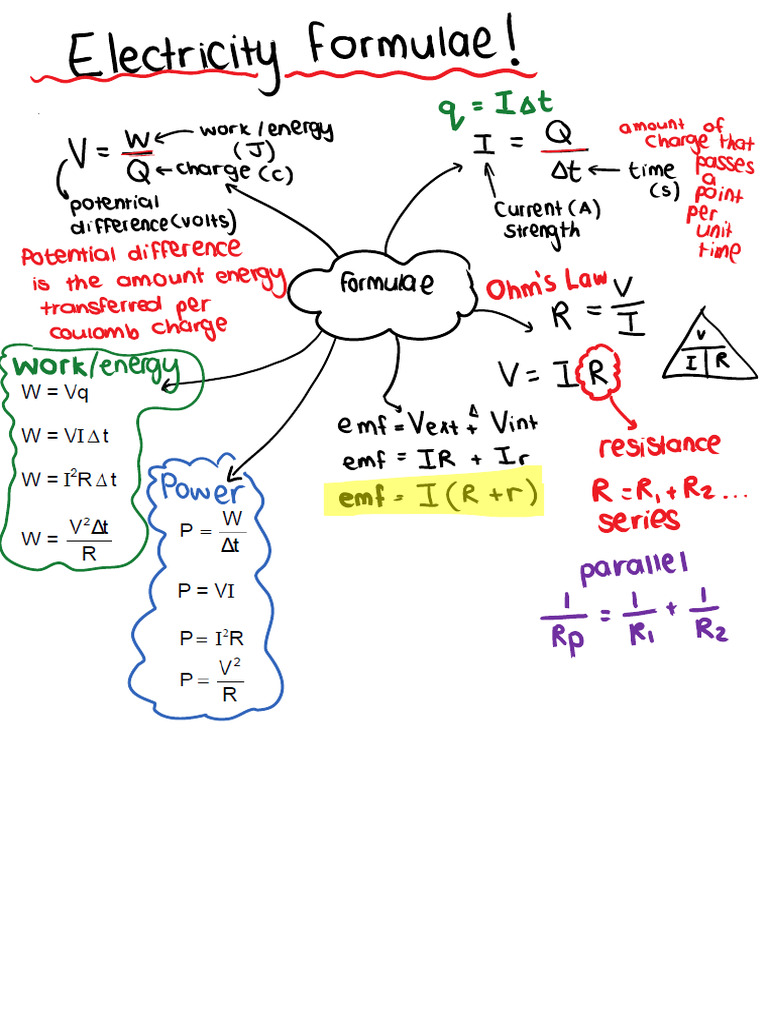 Electricity Formulae!
q = IΔt
V = W/Q
work/energy (J)
charge (C)
potential
difference (volts)
Potential difference
is the amount energy
transferred per
coulomb charge
I = Q/Δt
time
(s)
Current (A)
Strength
amount of
charge that
passes
a
point
per
unit
time
formulae
Ohm's Law
R = V/I
V
I | R
V = IR
resistance
R = R₁ + R₂ ...
series
parallel
1/Rp = 1/R₁ + 1/R₂
emf = Vext + Vint
emf = IR + Ir
emf = I(R + r)
work/energy
W = Vq
W = VIΔt
W = I²RΔt
W = V²Δt/R
Power
P = W/Δt
P = VI
P = I²R
P = V²/R